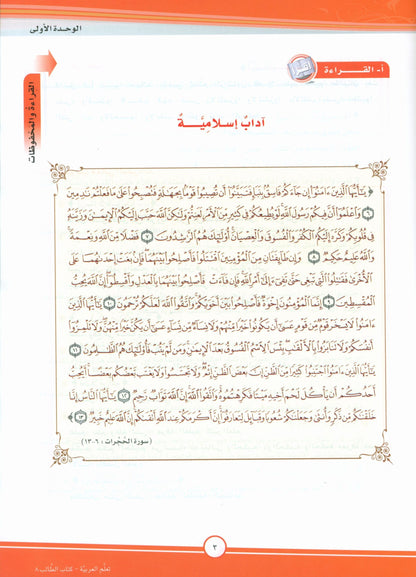 الوحدة الأولى
أ- القــراءة
القراءة والمحفوظات
آدابٌ إسلاميَّةٌ
﴿ يَٰٓأَيُّهَا الَّذِينَ ءَامَنُوٓا إِن جَآءَكُمْ فَاسِقٌۢ بِنَبَإٍ فَتَبَيَّنُوٓا أَن تُصِيبُوا قَوْمًۢا بِجَهَٰلَةٍ فَتُصْبِحُوا عَلَىٰ مَا فَعَلْتُمْ نَٰدِمِينَ
٦ وَاعْلَمُوٓا أَنَّ فِيكُمْ رَسُولَ اللَّهِ لَوْ يُطِيعُكُمْ فِى كَثِيرٍ مِّنَ الْأَمْرِ لَعَنِتُّمْ وَلَٰكِنَّ اللَّهَ حَبَّبَ إِلَيْكُمُ الْإِيمَٰنَ وَزَيَّنَهُۥ
فِى قُلُوبِكُمْ وَكَرَّهَ إِلَيْكُمُ الْكُفْرَ وَالْفُسُوقَ وَالْعِصْيَانَ أُولَٰٓئِكَ هُمُ الرَّٰشِدُونَ ٧ فَضْلًا مِّنَ اللَّهِ وَنِعْمَةً
وَاللَّهُ عَلِيمٌ حَكِيمٌ ٨ وَإِن طَآئِفَتَانِ مِنَ الْمُؤْمِنِينَ اقْتَتَلُوا فَأَصْلِحُوا بَيْنَهُمَا فَإِنۢ بَغَتْ إِحْدَىٰهُمَا عَلَى
الْأُخْرَىٰ فَقَٰتِلُوا الَّتِى تَبْغِى حَتَّىٰ تَفِىٓءَ إِلَىٰٓ أَمْرِ اللَّهِ فَإِن فَآءَتْ فَأَصْلِحُوا بَيْنَهُمَا بِالْعَدْلِ وَأَقْسِطُوٓا إِنَّ اللَّهَ يُحِبُّ
الْمُقْسِطِينَ ٩ إِنَّمَا الْمُؤْمِنُونَ إِخْوَةٌ فَأَصْلِحُوا بَيْنَ أَخَوَيْكُمْ وَاتَّقُوا اللَّهَ لَعَلَّكُمْ تُرْحَمُونَ ١٠ يَٰٓأَيُّهَا الَّذِينَ
ءَامَنُوا لَا يَسْخَرْ قَوْمٌ مِّن قَوْمٍ عَسَىٰٓ أَن يَكُونُوا خَيْرًا مِّنْهُمْ وَلَا نِسَآءٌ مِّن نِّسَآءٍ عَسَىٰٓ أَن يَكُنَّ خَيْرًا مِّنْهُنَّ وَلَا تَلْمِزُوٓا
أَنفُسَكُمْ وَلَا تَنَابَزُوا بِالْأَلْقَٰبِ بِئْسَ الِاسْمُ الْفُسُوقُ بَعْدَ الْإِيمَٰنِ وَمَن لَّمْ يَتُبْ فَأُولَٰٓئِكَ هُمُ الظَّٰلِمُونَ ١١
يَٰٓأَيُّهَا الَّذِينَ ءَامَنُوا اجْتَنِبُوا كَثِيرًا مِّنَ الظَّنِّ إِنَّ بَعْضَ الظَّنِّ إِثْمٌ وَلَا تَجَسَّسُوا وَلَا يَغْتَب بَّعْضُكُم بَعْضًا أَيُحِبُّ
أَحَدُكُمْ أَن يَأْكُلَ لَحْمَ أَخِيهِ مَيْتًا فَكَرِهْتُمُوهُ وَاتَّقُوا اللَّهَ إِنَّ اللَّهَ تَوَّابٌ رَّحِيمٌ ١٢ يَٰٓأَيُّهَا النَّاسُ إِنَّا
خَلَقْنَٰكُم مِّن ذَكَرٍ وَأُنثَىٰ وَجَعَلْنَٰكُمْ شُعُوبًا وَقَبَآئِلَ لِتَعَارَفُوٓا إِنَّ أَكْرَمَكُمْ عِندَ اللَّهِ أَتْقَىٰكُمْ إِنَّ اللَّهَ عَلِيمٌ خَبِيرٌ ١٣ ﴾
(سورة الحُجُرات: ٦-١٣)
٣
تعلّم العربيّة - كتاب الطّالب ٨